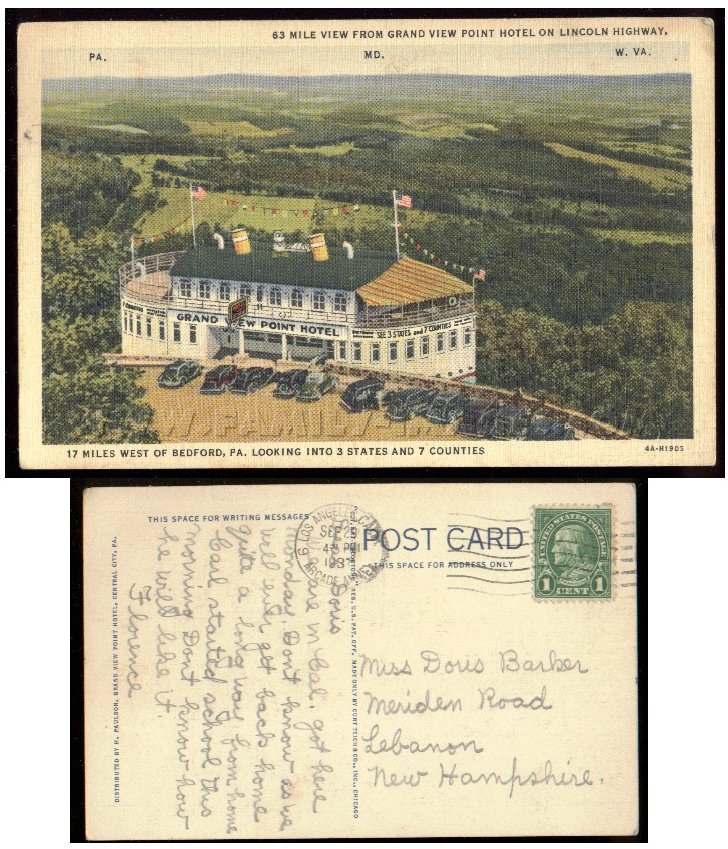 63 MILE VIEW FROM GRAND VIEW POINT HOTEL ON LINCOLN HIGHWAY,
PA. MD. W. VA.
GRAND VIEW POINT HOTEL
SEE 3 STATES AND 7 COUNTIES
17 MILES WEST OF BEDFORD, PA. LOOKING INTO 3 STATES AND 7 COUNTIES
4A-H1905
THIS SPACE FOR WRITING MESSAGES
POST CARD
THIS SPACE FOR ADDRESS ONLY
LOS ANGELES, CAL.
6
SEP
4 PM
1937
ARCADE
UNITED STATES POSTAGE
1 CENT 1
Doris
are in Cal, got here
monday. Dont know as we
will ever get back home
Quite a long way from home
Carl started school this
morning Dont know how
he will like it.
Florence
Miss Doris Barker
Meriden Road
Lebanon
New Hampshire.
DISTRIBUTED BY H. PAULSON, GRAND VIEW POINT HOTEL, CENTRAL CITY, PA.
REG. U.S. PAT. OFF. MADE ONLY BY CURT TEICH & CO., INC., CHICAGO